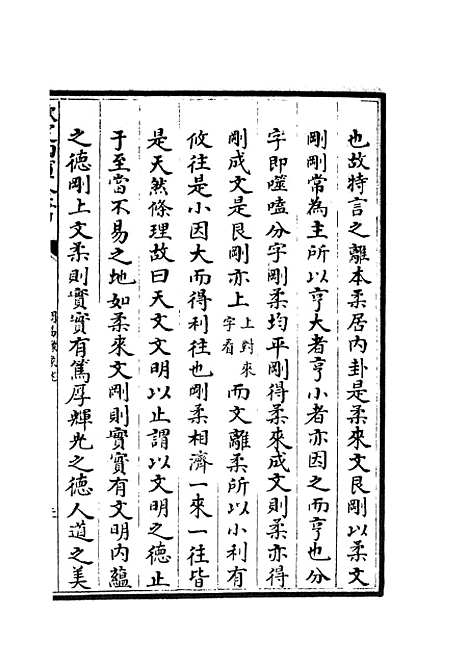 也故特言之離本柔居内卦是柔來文艮剛以柔文
剛剛常為主所以亨大者亨小者亦因之而亨也分
字即噬嗑分字剛柔均平剛得柔來成文則柔亦得
剛成文是艮剛亦上上對來字看而文離柔所以小利有
攸往是小因大而得利往也剛柔相濟一來一往皆
是天然條理故曰天文文明以止謂以文明之德止
于至當不易之地如柔來文剛則實實有文明内蘊
之德剛上文柔則實實有篤厚輝光之德人道之美